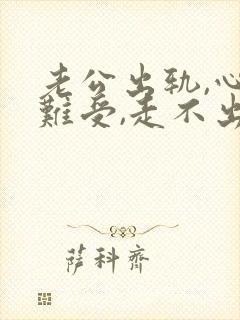 老公出轨,心
難受,走不出
萨科齊